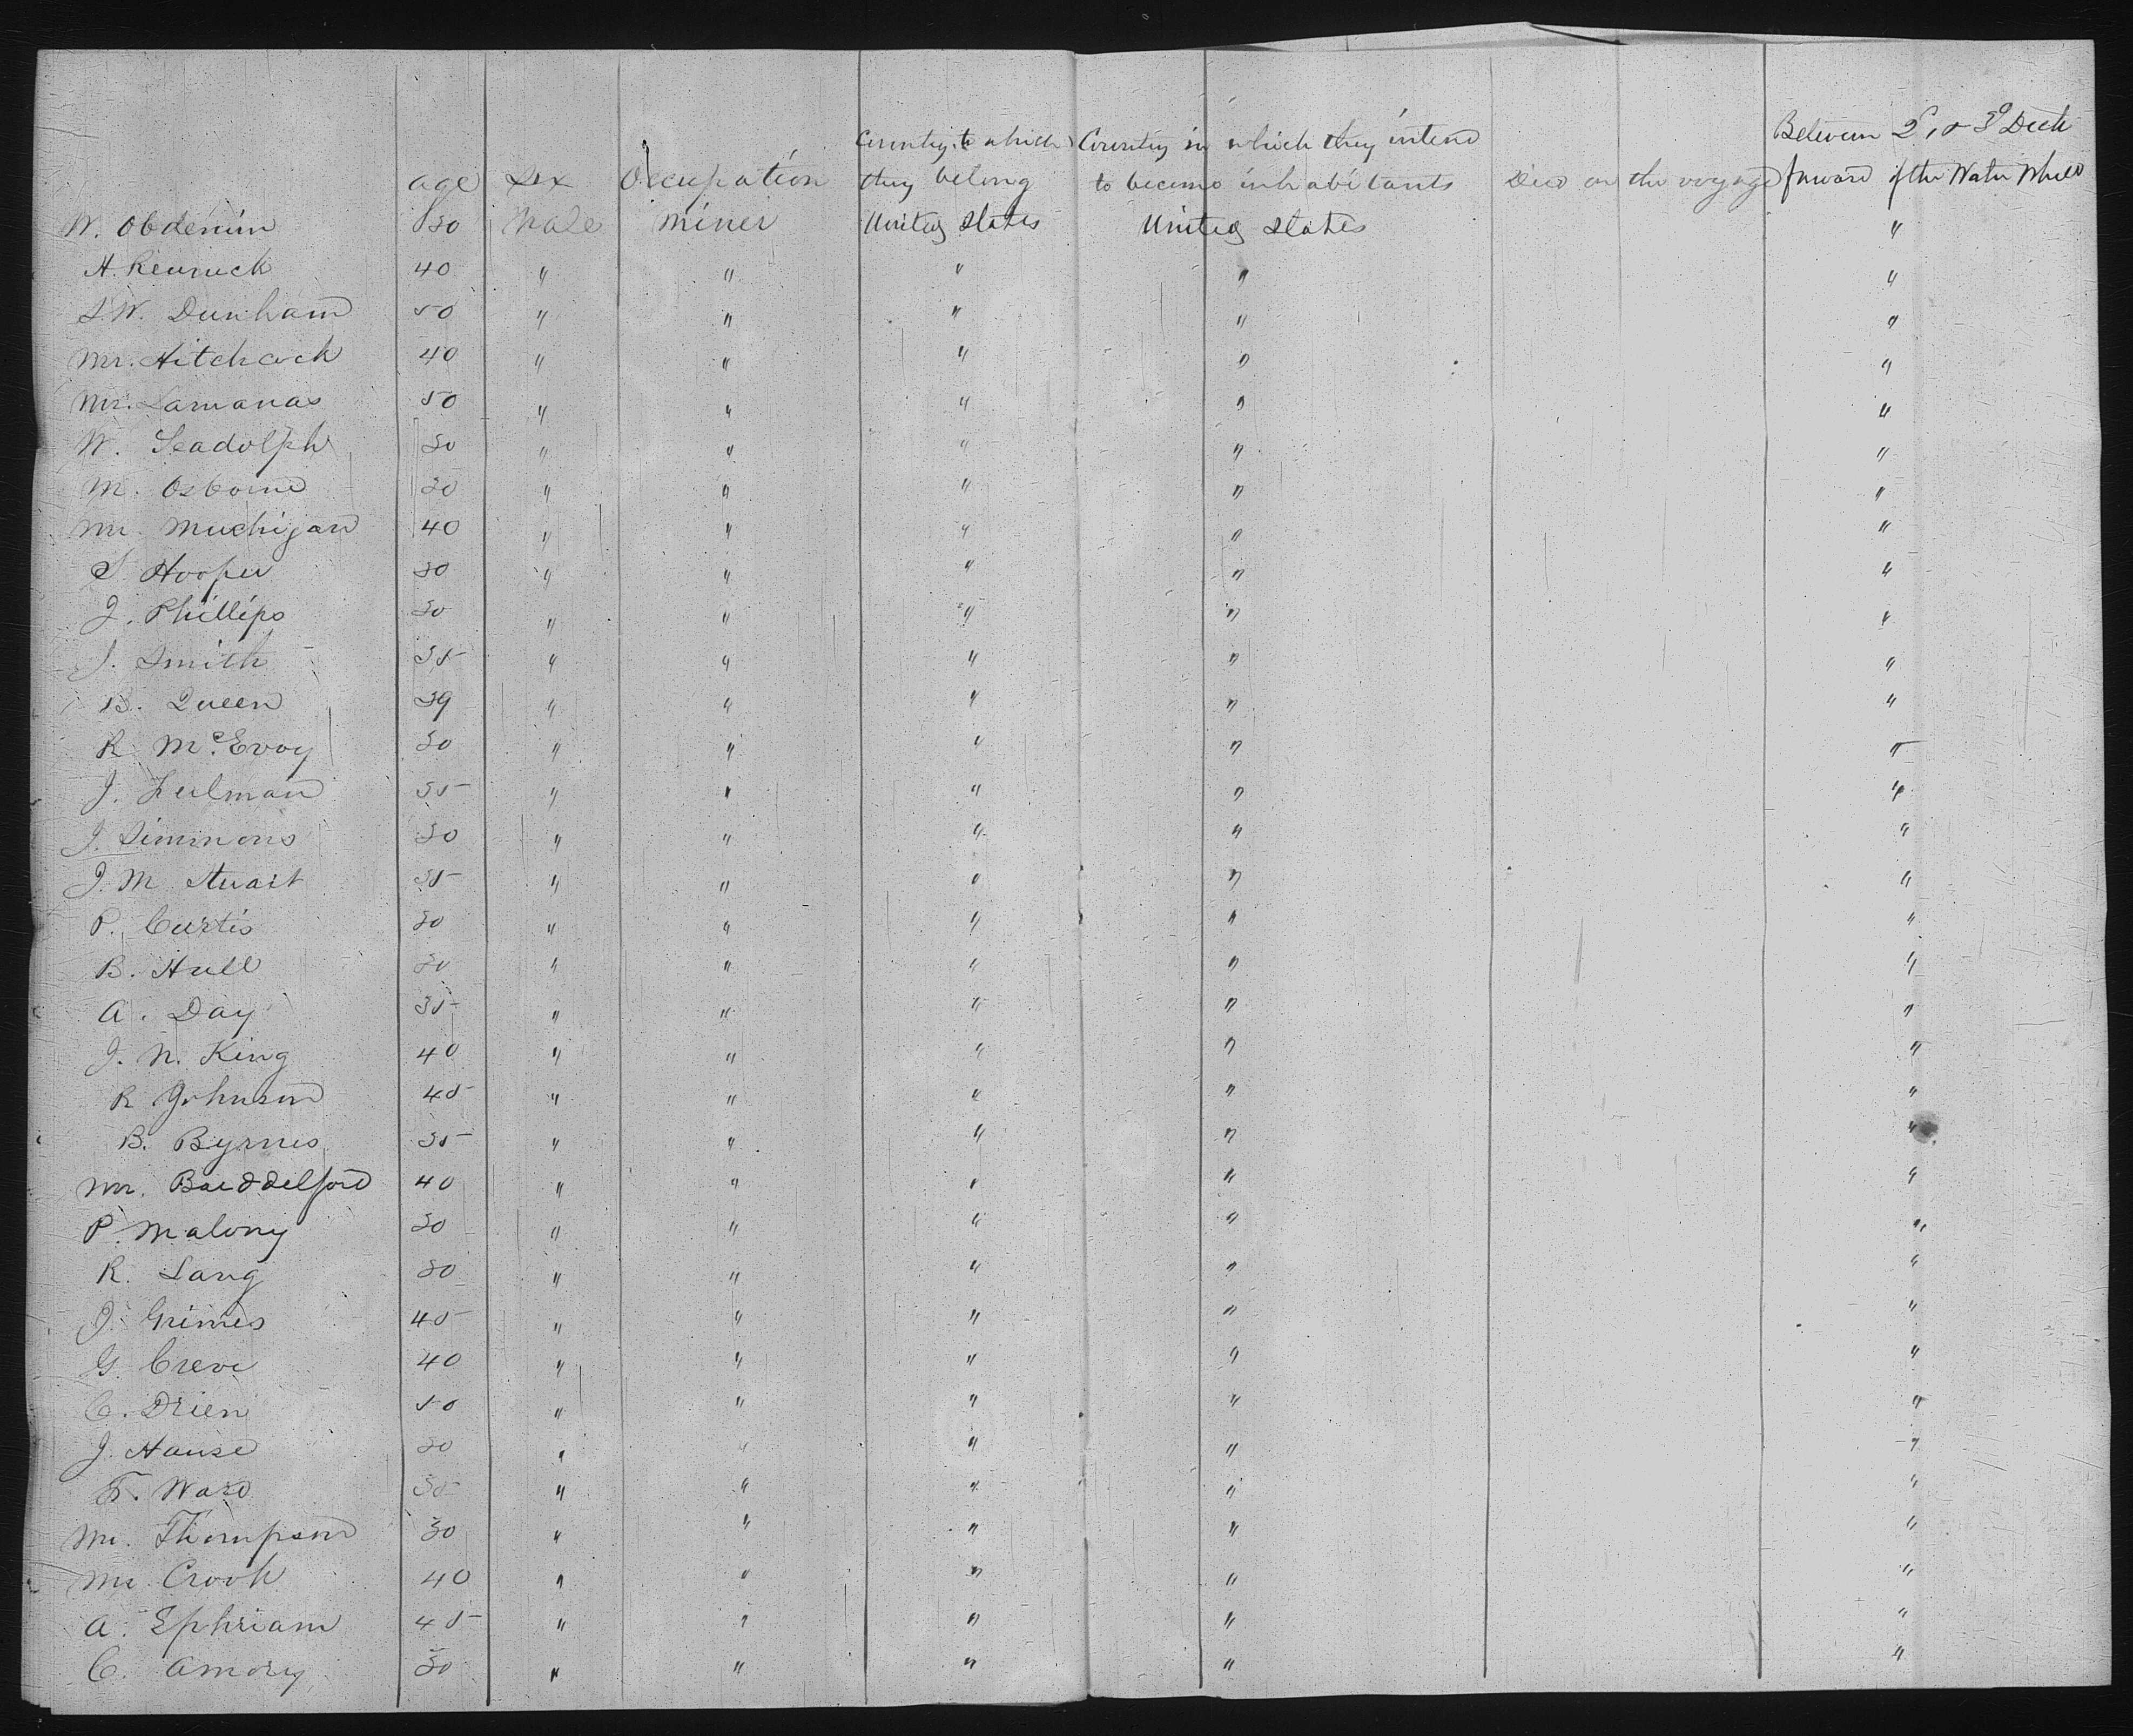 Between 2d, & 3d Deck
Country to which Country in which they intend
age Sex Occupation they belong to become inhabitants Died on the voyage forward of the Water Wheel
W. Obdenim 30 Male Miner United States United States "
A. 40 " " " " "
S.W. Dunham 50 " " " " "
Mr. Hitchcock 40 " " " " "
Mr. Lamanas 50 " " " " "
W. Seadolph 30 " " " " "
M. Osborne 30 " " " " "
Mr. Muchigan 40 " " " " "
S. Hooper 30 " " " " "
J. Phillips 30 " " " " "
J. Smith 35 " " " " "
B. Queen 39 " " " " "
R McEvoy 30 " " " " "
J. 35 " " " " "
J. Simmons 30 " " " " "
J. M Stuart 35 " " " " "
P. Curtis 30 " " " " "
B. Hull 30 " " " " "
A. Day 35 " " " " "
J. N. King 40 " " " " "
R Johnson 45 " " " " "
B. Byrnes 35 " " " " "
Mr. 40 " " " " "
P. Malony 30 " " " " "
R. Lang 30 " " " " "
J. Grimes 45 " " " " "
G. Creve 40 " " " " "
C. Drien 50 " " " " "
J. Hause 30 " " " " "
F. Ward 35 " " " " "
Mr. Thompson 30 " " " " "
Mr. Crook 40 " " " " "
A. Ephriam 45 " " " " "
C. Amory 30 " " " " "